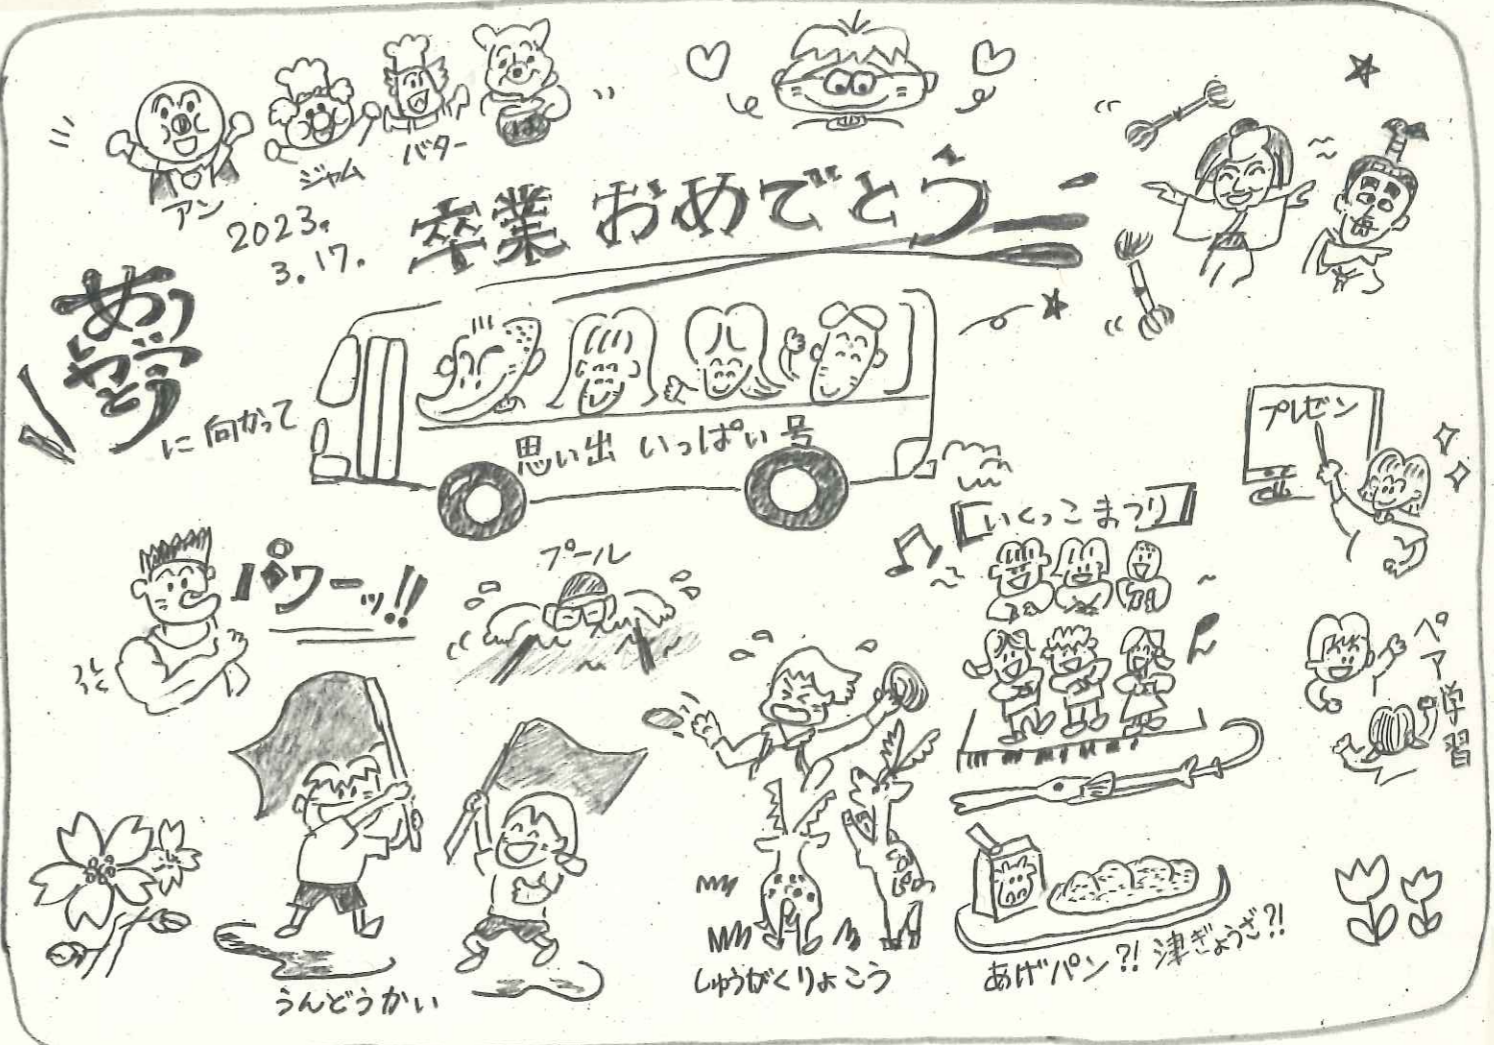 アン
ジャム
バター
は
2023.
3.17.
卒業 おめでとう
に 向かって
思い出 いっぱい 号
プレゼン
パワーッ!!
プール
いくっこ まつり
ペア学習
うんどうかい
しゅうがくりょこう
あげパン?! 津ぎょうざ?!